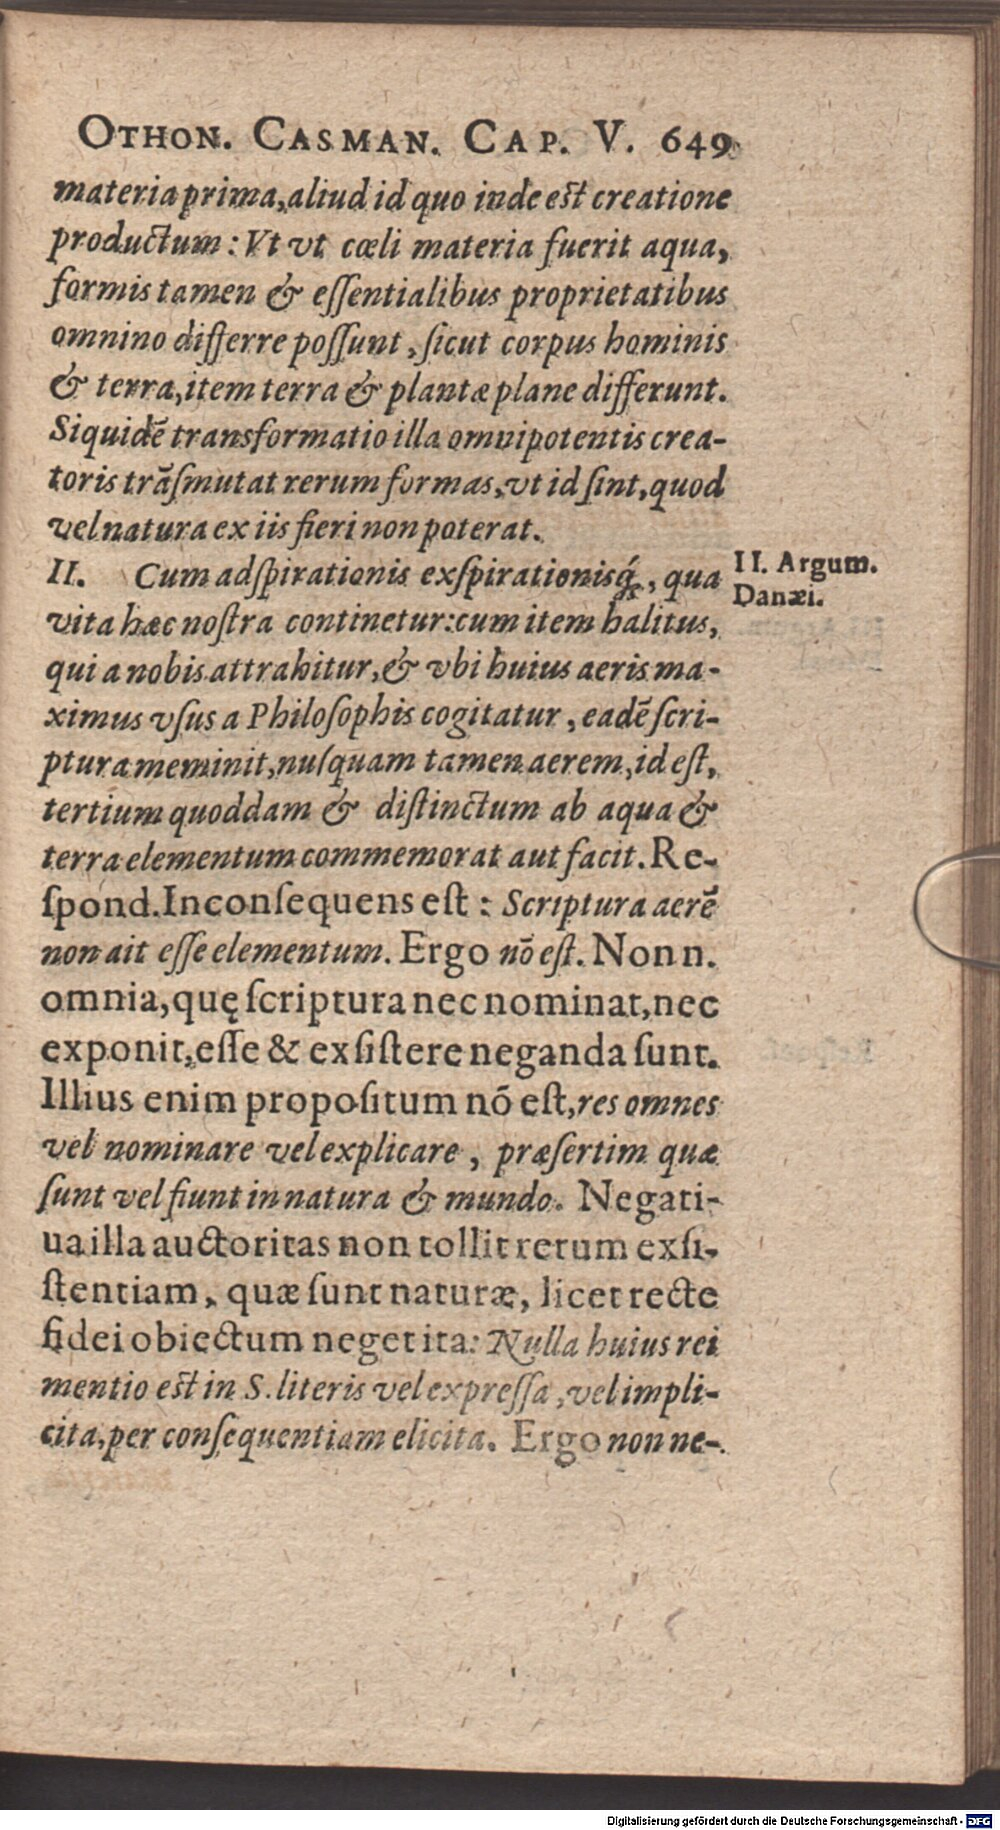 OTHON. CASMAN. CAP. V. 649
materia prima, aliud id quo inde est creatione
productum: Vt vt cœli materia fuerit aqua,
formis tamen & eſſentialibus proprietatibus
omnino differre poſſunt, ſicut corpus hominis
& terra, item terra & plantæ plane differunt.
Siquidē transformatio illa omnipotentis crea-
toris trāſmutat rerum formas, vt id ſint, quod
vel natura ex iis fieri non poterat.
II. Cum adſpirationis exſpirationisq́;, qua
vita hæc noſtra continetur: cum item halitus,
qui a nobis attrahitur, & vbi huius aeris ma-
ximus vſus a Philoſophis cogitatur, eadē ſcri-
ptura meminit, nuſquam tamen aerem, id eſt,
tertium quoddam & diſtinctum ab aqua &
terra elementum commemorat aut facit. Re-
ſpond. Inconſequens eſt: Scriptura aerē
non ait eſſe elementum. Ergo nō eſt. Non n.
omnia, quę ſcriptura nec nominat, nec
exponit, eſſe & exſiſtere neganda ſunt.
Illius enim propoſitum nō eſt, res omnes
vel nominare vel explicare, præſertim quæ
ſunt vel fiunt in natura & mundo. Negati-
ua illa auctoritas non tollit rerum exſi-
ſtentiam, quæ ſunt naturæ, licet recte
fidei obiectum neget ita: Nulla huius rei
mentio est in S. literis vel expreſſa, vel impli-
cita, per conſequentiam elicita. Ergo non ne-
II. Argum.
Danæi.
Digitalisierung gefördert durch die Deutsche Forschungsgemeinschaft - DFG